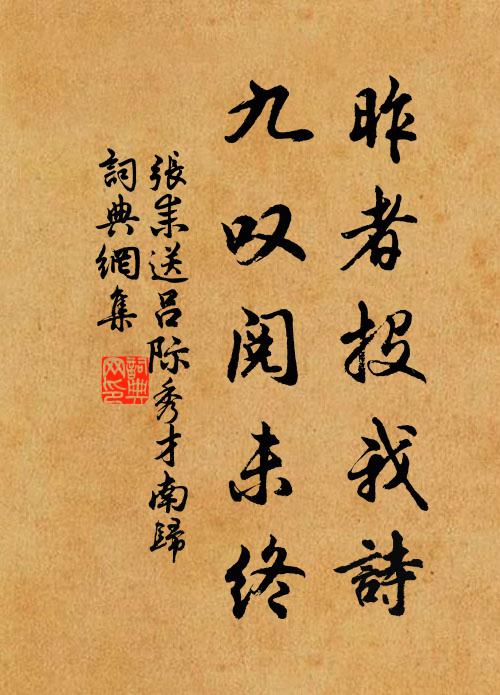 昨者投我詩
九叹阅未终
張耒送呂际秀才南歸
詞典網集
詞典网印